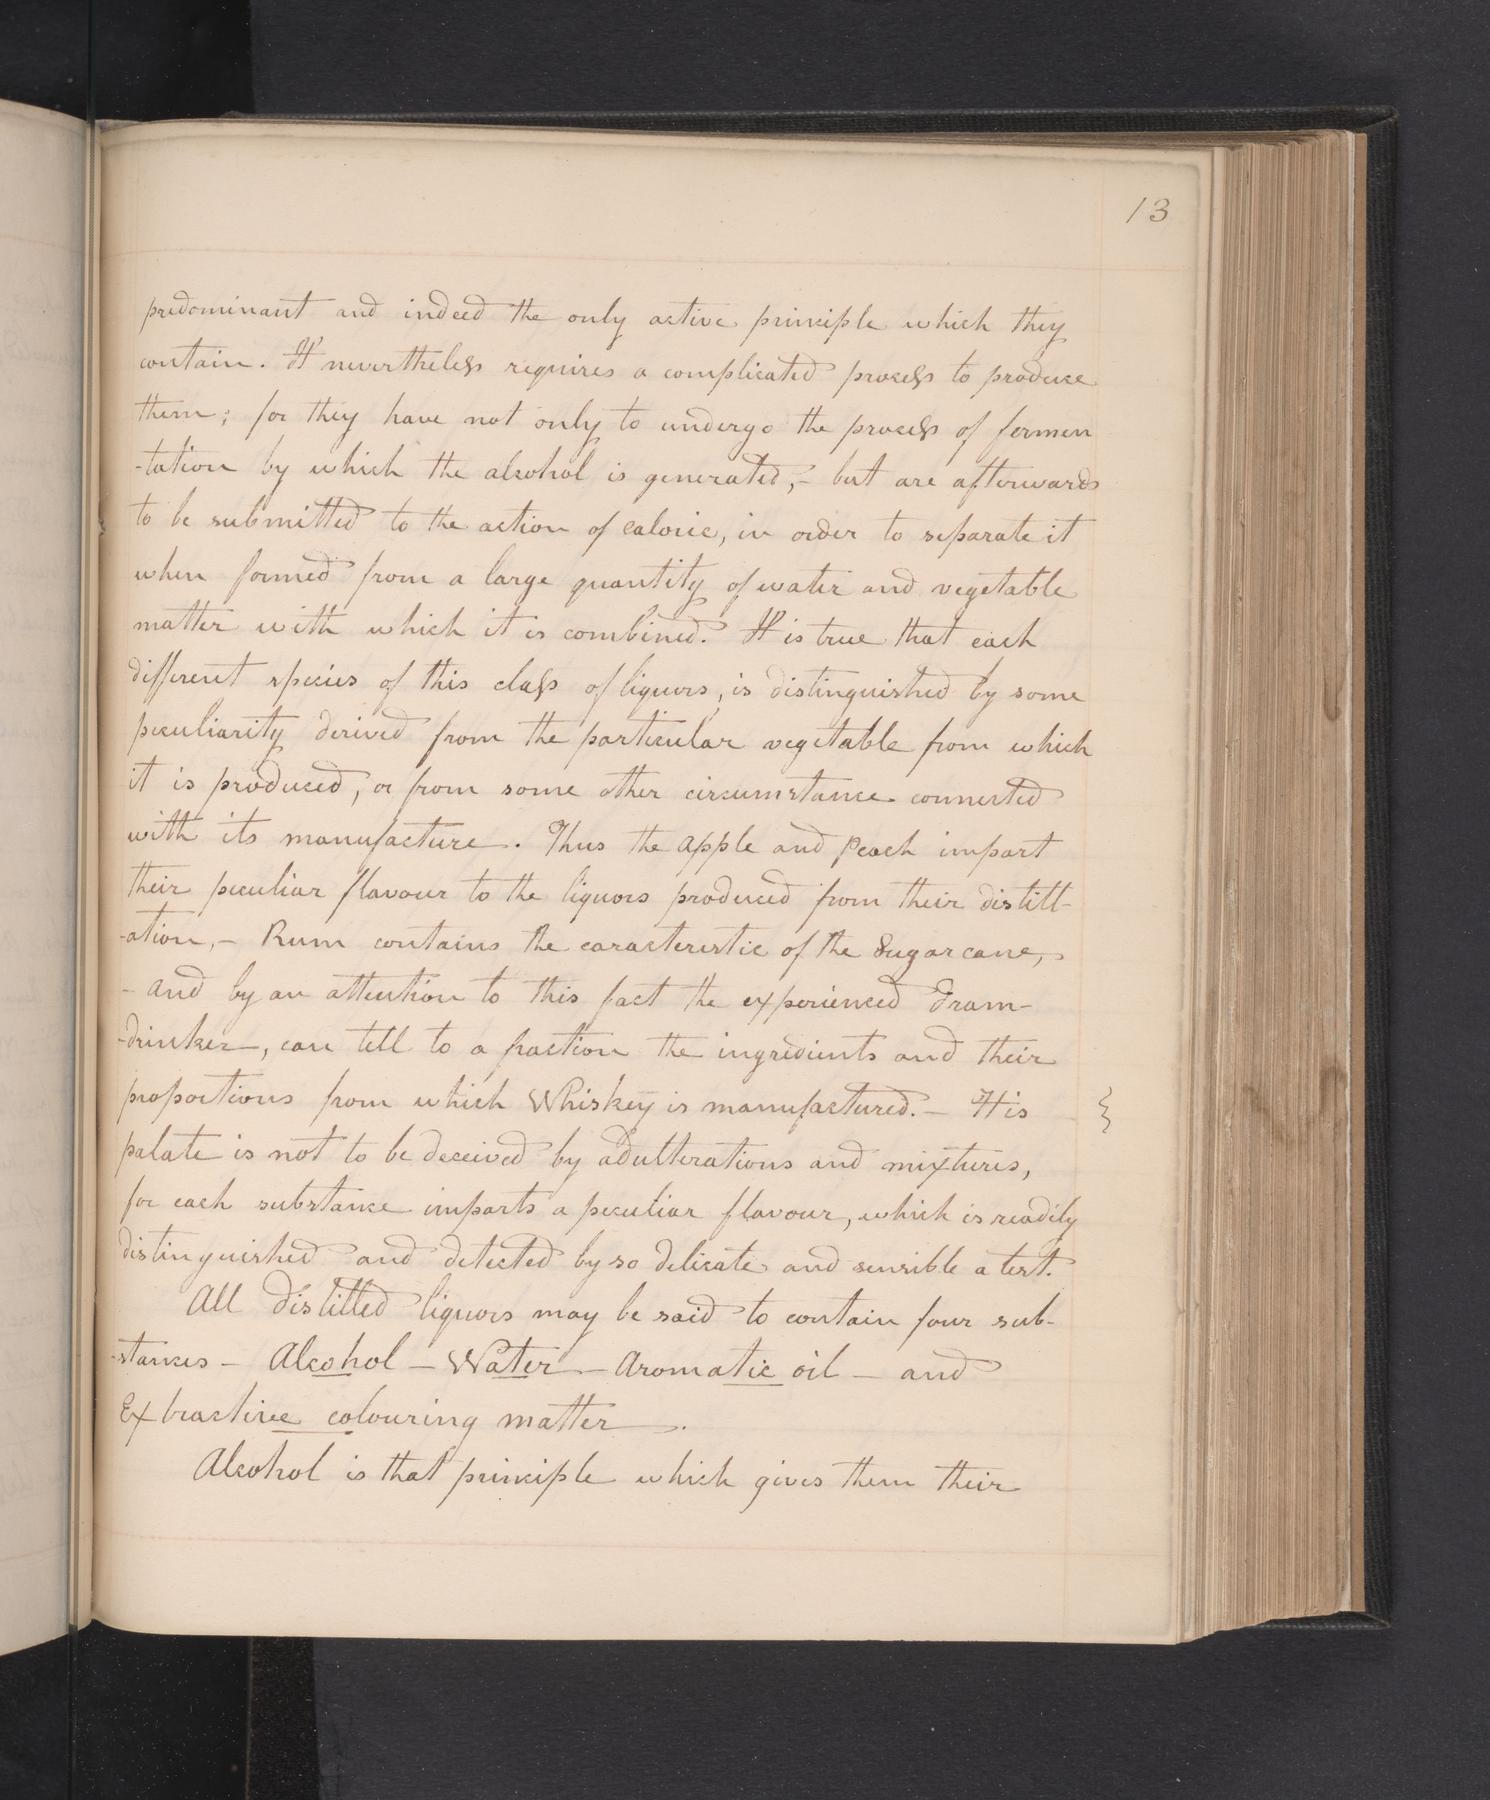 13
predominant and indeed the only active principle which they
contain. It nevertheless requires a complicated process to produce
them; for they have not only to undergo the process of fermen
-tation by which the alcohol is generated,- but are afterwards
to be submitted to the action of caloric, in order to separate it
when formed from a large quantity of water and vegetable
matter with which it is combined. It is true that each
different species of this class of liquors, is distinguished by some
peculiarity derived from the particular vegetable from which
it is produced, or from some other circumstance connected
with its manufacture. Thus the apple and Peach impart
their peculiar flavour to the liquors produced from their distill-
-ation,- Rum contains the caracteristic of the Sugar cane,
- and by an attention to this fact the experienced dram-
-drinker, can tell to a fraction the ingredients and their
proportions from which Whiskey is manufactured.- His
palate is not to be deceived by adulterations and mixtures,
for each substance imparts a peculiar flavour, which is readily
distinguished and detected by so delicate and sensible a test.
All distilled liquors may be said to contain four sub-
-stances - Alcohol - Water - Aromatic oil - and
Extractive colouring matter.
Alcohol is that principle which gives them their